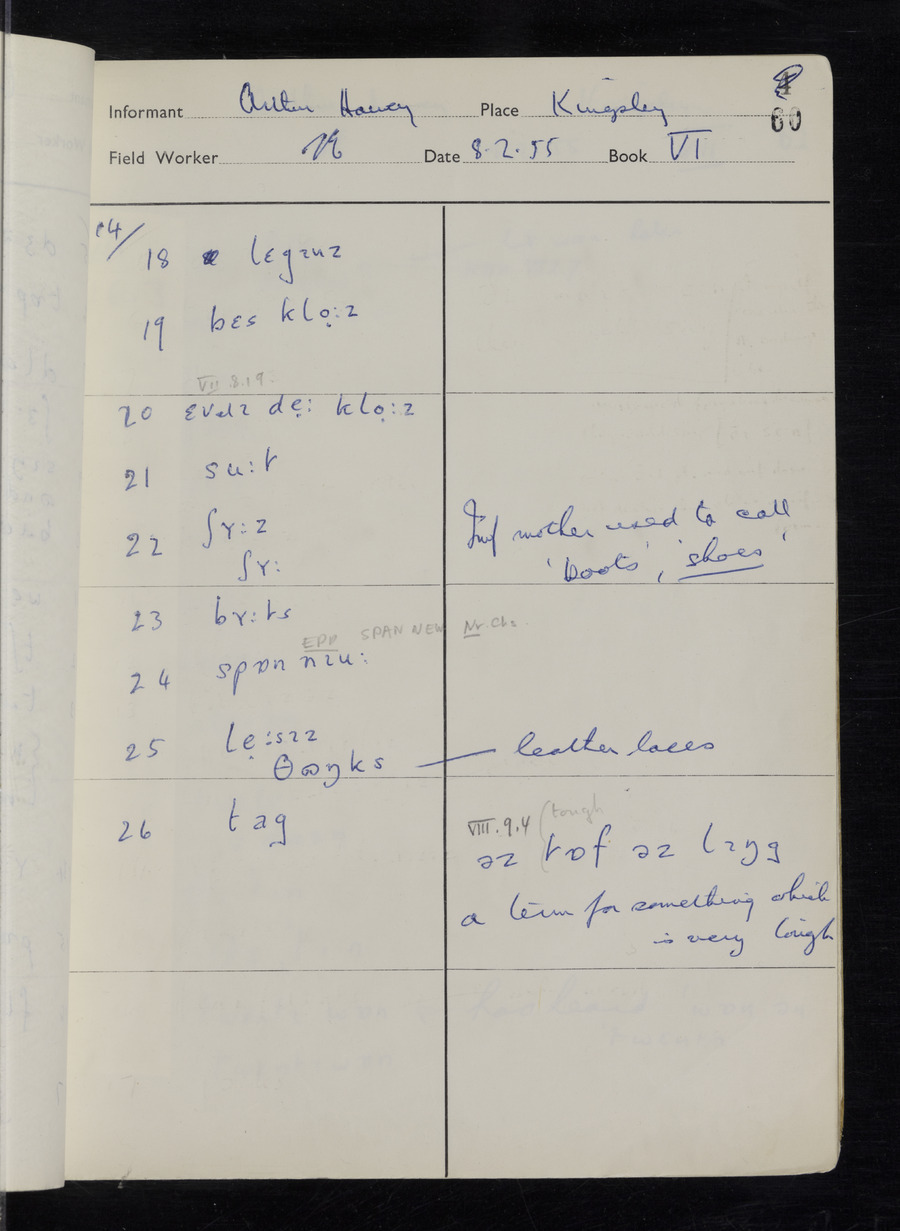 60
Informant Place Kingsley
Field Worker Date 8.2.55 Book VI
14/
18 lɛgɪnz
19 bɛs klọ:z
VII 8.19.
20 ɛvɹɪ dẹ: klọ:z
21 su:t
22 ʃʏ:z
ʃʏ:
Inf mother used to call
'boots', 'shoes'
23 bʏ:ts
EPP SPAN NEW Nr. Chs.
24 spɒn nɪu:
25 lẹ:sɪz
θɒŋks — leather laces
26 tag
VIII.9.4 (tough
əz tɒf əz
a term for something which
is very tough